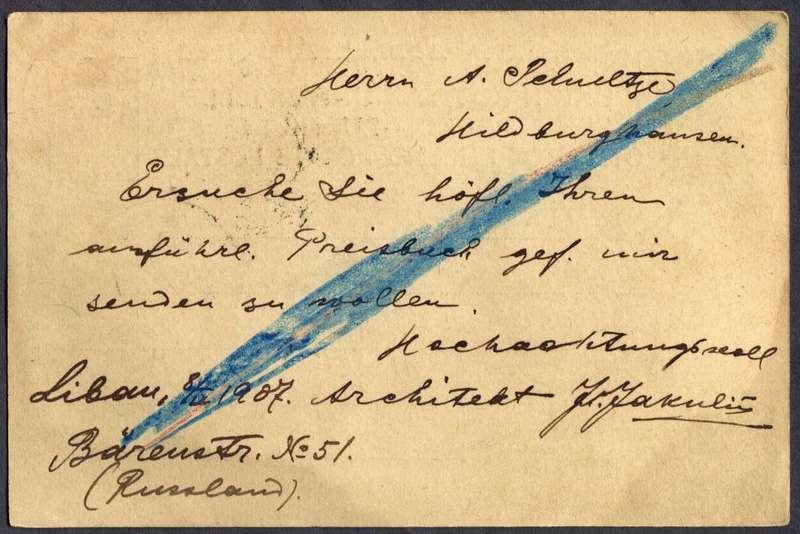 Herrn A. Schultze
Hildburghausen.
Ersuche Sie höfl. Ihren
ausführl. Preisbuch gef. mir
senden zu wollen
Hochachtungsvoll
Libau, 1907. Architekt
Bärenstr. No 51.
(Russland).